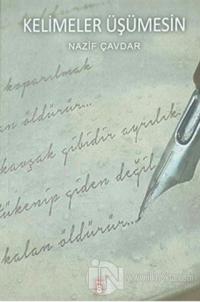 KELİMELER ÜŞÜMESİN
NAZİF ÇAVDAR
koparılmak
an öldürür...
kavşak gibidir ayrılık
tükenip giden değil
kalan öldürür...